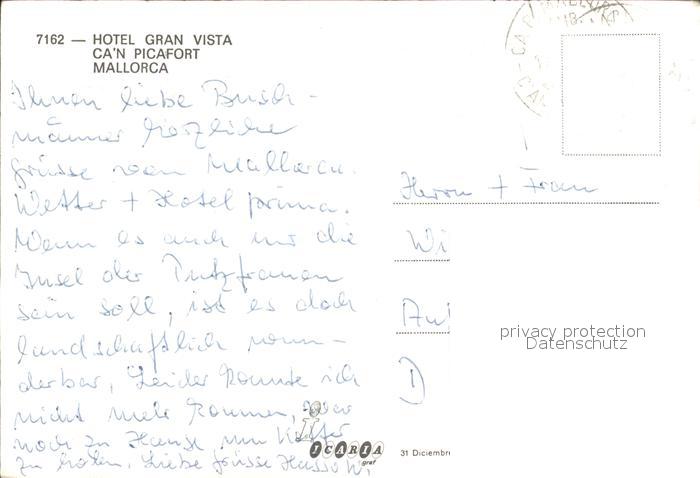 7162 — HOTEL GRAN VISTA
CA'N PICAFORT
MALLORCA
Ihnen liebe Busch-
männer herzliche
Grüsse vom Mallorca.
Wetter + Hotel prima.
Wenn es auch nur die
Insel der Putzfrauen
sein soll, ist es doch
landschaftlich wun-
derbar, Leider konnte ich
nicht mehr kommen,
noch zu Hause um Koffer
zu holen, Liebe Grüsse
Herrn + Frau
Wi
D
privacy protection
Datenschutz
ICARIA
graf
31 Diciembre